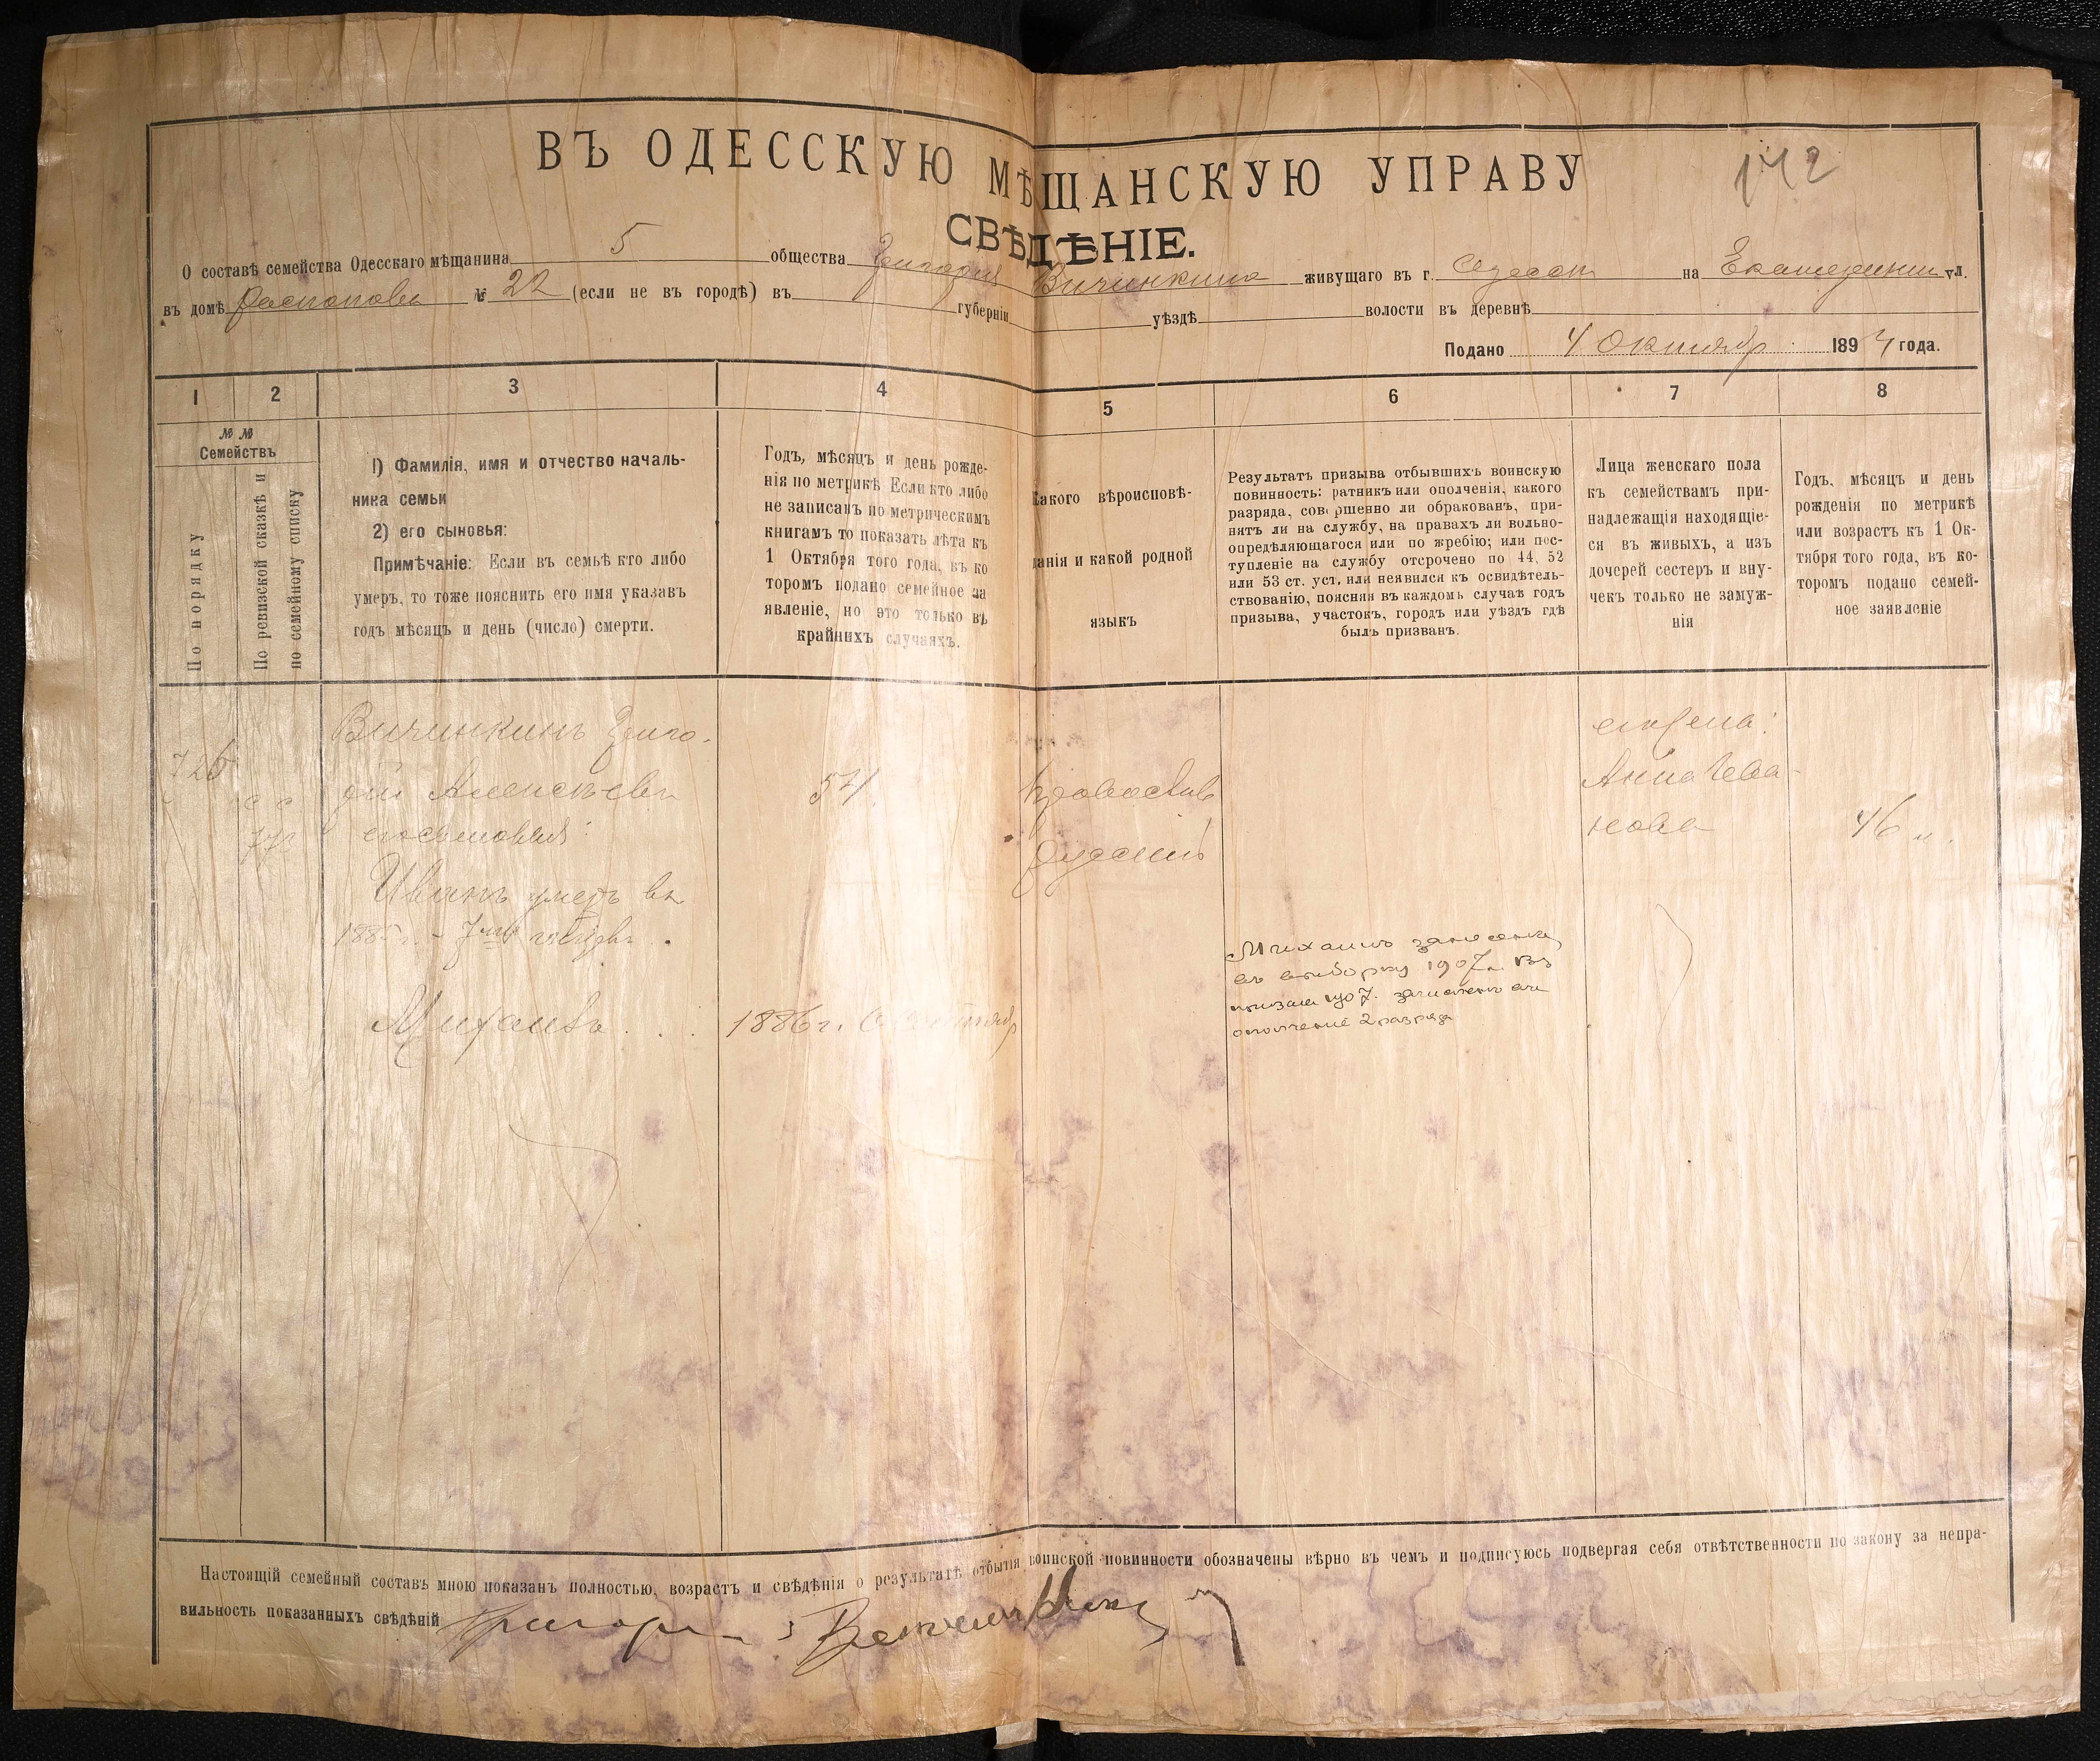 ВЪ ОДЕССКУЮ МѢЩАНСКУЮ УПРАВУ
142
СВѢДѢНІЕ.
О составѣ семейства Одесскаго мѣщанина 5 общества Григорія Вичинкина живущаго въ г. Одессѣ на Екатеринин ул.
въ домѣ Распопова № 22 (если не въ городѣ) въ губерніи уѣздѣ волости въ деревнѣ
Подано 4 Октября 1894 года.
1 2 3 4 5 6 7 8
№ №
Семействъ
По порядку
По ревизской сказкѣ и
по семейному списку
1) Фамилія, имя и отчество началь-
ника семьи
2) его сыновья:
Примѣчаніе: Если въ семьѣ кто либо
умеръ, то тоже пояснить его имя указавъ
годъ мѣсяцъ и день (число) смерти.
Годъ, мѣсяцъ и день рожде-
нія по метрикѣ Если кто либо
не записанъ по метрическимъ
книгамъ то показать лѣта къ
1 Октября того года, въ ко
торомъ подано семейное за
явленіе, но это только въ
крайнихъ случаяхъ.
Какого вѣроисповѣ-
данія и какой родной
языкъ
Результатъ призыва отбывшихъ воинскую
повинность: ратникъ или ополченія, какого
разряда, совершенно ли обракованъ, при-
нятъ ли на службу, на правахъ ли вольно-
опредѣляющагося или по жребію; или пос-
тупленіе на службу отсрочено по 44, 52
или 53 ст. уст, или неявился къ освидѣтель-
ствованію, поясняя въ каждомъ случаѣ годъ
призыва, участокъ, городъ или уѣздъ гдѣ
былъ призванъ.
Лица женскаго пола
къ семействамъ при-
надлежащія находящіе-
ся въ живыхъ, а изъ
дочерей сестеръ и вну-
чекъ только не замуж-
нія
Годъ, мѣсяцъ и день
рожденія по метрикѣ
или возрастъ къ 1 Ок-
тября того года, въ ко-
торомъ подано семей-
ное заявленіе
726
Вичинкинъ Григо-
рій Алексѣевъ
его сыновья:
Иванъ умеръ въ
Михаилъ
54
1886 г.
Православ
Русскій
Михаилъ занесенъ
въ выборку 1907 г. Въ
призывъ 1907 г. зачисленъ въ
ополченіе 2 разряда
его жена:
Анна Ива-
нова
46 л.
Настоящій семейный составъ мною показанъ полностью, возрастъ и свѣдѣнія о результатѣ отбытія воинской повинности обозначены вѣрно въ чемъ и подписуюсь подвергая себя отвѣтственности по закону за непра-
вильность показанныхъ свѣдѣній